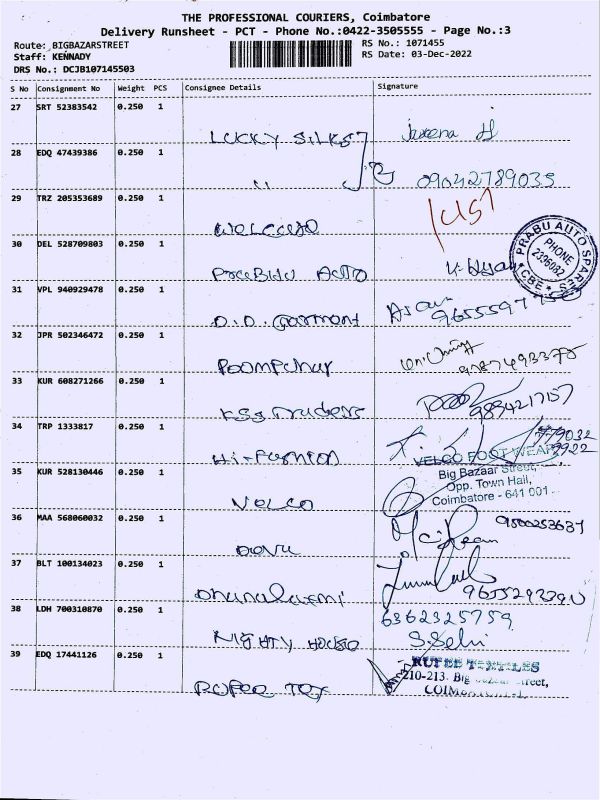 THE PROFESSIONAL COURIERS, Coimbatore
Delivery Runsheet - PCT - Phone No.:0422-3505555 - Page No.:3
Route: BIGBAZARSTREET RS No.: 1071455
Staff: KENNADY RS Date: 03-Dec-2022
DRS No.: DCJB107145503
S No Consignment No Weight PCS Consignee Details Signature
27 SRT 52383542 0.250 1
LUCKY SILKS
28 EDQ 47439386 0.250 1
"
09042789035
29 TRZ 205353689 0.250 1
welcome
30 DEL 528709803 0.250 1
Auto
PRABU AUTO SPARES
PHONE
2396082
*CBE*
31 VPL 940929478 0.250 1
O.D. Garment
32 JPR 502346472 0.250 1
Poompuhar
33 KUR 608271266 0.250 1
KSG Traders
9884217157
34 TRP 1333817 0.250 1
Hi-Fashion
VELCO FOOT WEAR
35 KUR 528130446 0.250 1
Big Bazaar Street,
Opp. Town Hall,
Coimbatore - 641 001
Velco
36 MAA 568060032 0.250 1
9500253637
37 BLT 100134023 0.250 1
Dhanalaxmi
38 LDH 700310870 0.250 1
6362325759
S.Selvi
Nighty House
39 EDQ 17441126 0.250 1
RUPEE TEXTILES
210-213, Big Bazaar Street,
Rupee Tex